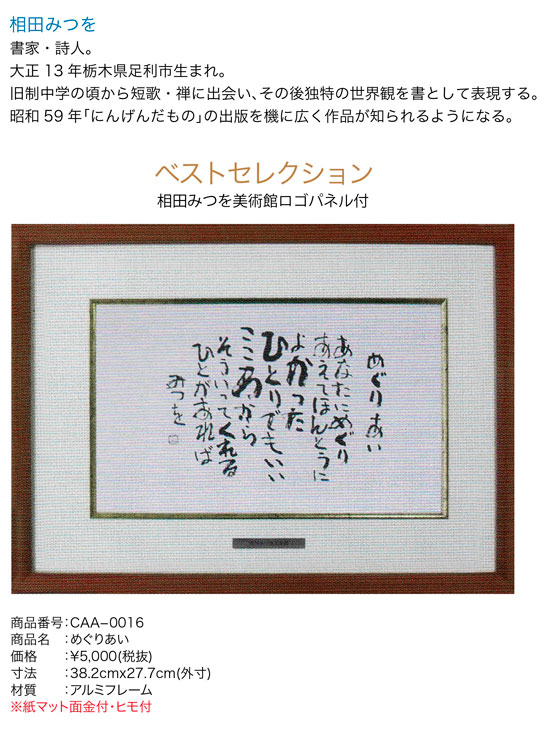 相田みつを
書家・詩人。
大正 13 年栃木県足利市生まれ。
旧制中学の頃から短歌・禅に出会い、その後独特の世界観を書として表現する。
昭和 59 年「にんげんだもの」の出版を機に広く作品が知られるようになる。
ベストセレクション
相田みつを美術館ロゴパネル付
めぐりあい
あなたにめぐり
あえてほんとうに
よかった
ひとりでもいい
こころから
そういってくれる
ひとがあれば
みつを
商品番号：CAA−0016
商品名　：めぐりあい
価格　　：¥5,000(税抜)
寸法　　：38.2cmx27.7cm(外寸)
材質　　：アルミフレーム
※紙マット面金付・ヒモ付